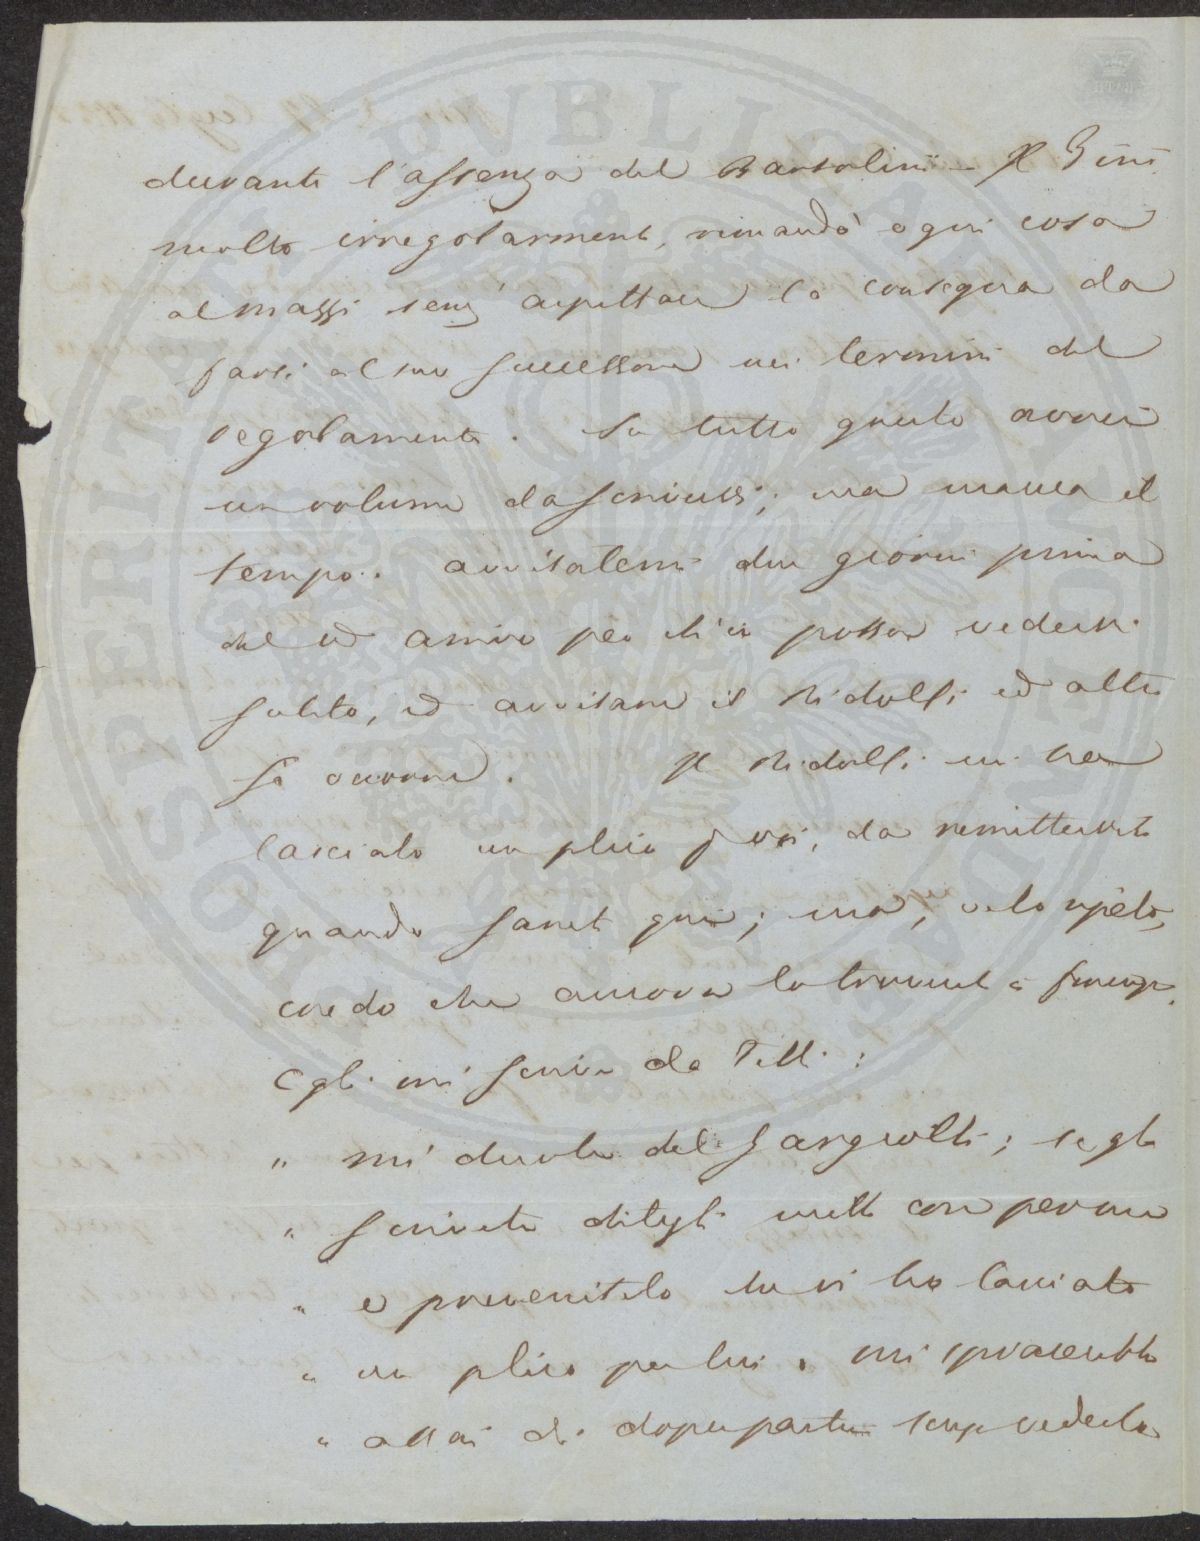 durante l'assenza del Bartolini – Il Gini
molto irregolarment, rimandò ogni cosa
al Mazzi senz' aspettare la consegna da
farsi al suo successore nei termini del
regolamento. Su tutto questo avrei
un volume da scrivervi; ma manca il
tempo. avvisatemi due giorni prima
del vo arrivo per ch'io possa vedervi
subito, ed avvisare il Ridolfi ed altri
se occorre. Il Ridolfi mi ha
lasciato un plico p voi, da remittervelo
quando sarete qui; ma, ve lo ripeto,
credo che ancora lo troverete a firenze.
Egli mi scrive da
" mi duole del Sangiolli; se gli
" scrivete ditegli mille cose per me
" e prevenitelo che vi ho lasciato
" un plico per lui. mi spiacerebbe
" assai di dover partir senza vederlo